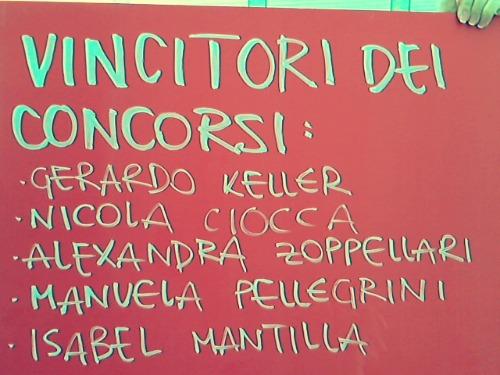 VINCITORI DEI
CONCORSI:
·GERARDO KELLER
·NICOLA CIOCCA
·ALEXANDRA ZOPPELLARI
·MANUELA PELLEGRINI
·ISABEL MANTILLA